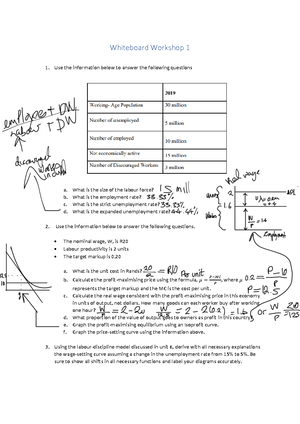 Whiteboard Workshop 1
1. Use the information below to answer the following questions
2019
Working- Age Population 30 million
Number of unemployed 5 million
Number of employed 10 million
Not economically active 15 million
Number of Discouraged Workers 3 million
employed + DW
+ DW
discouraged
a. What is the size of the labour force? 15 mill
b. What is the employment rate? 33.33%
c. What is the strict unemployment rate? 33.33%
d. What is the expanded unemployment rate? 44.44%
real wage
2
1.6
W/P = 1.6
Employment
2. Use the information below to answer the following.
• The nominal wage, W, is R20
• Labour productivity is 2 units
• The target markup is 0.20
a. What is the unit cost in Rands? 20/2 = R10 per unit
b. Calculate the profit-maximising price using the formula, μ = (P-MC)/P, where μ
represents the target markup and the MC is the cost per unit.
0.2 = (P-10)/P
P = 12.5
c. Calculate the real wage consistent with the profit-maximising price in this economy
in units of output, not dollars. How many goods can each worker buy after working
one hour? W/P = 2-2μ W/P = 2-2(0.2) = 1.6 or W/P
d. What proportion of the value of output goes to owners as profit in this country?
e. Graph the profit-maximising equilibrium using an isoprofit curve.
f. Graph the price-setting curve using the information above.
3. Using the labour-discipline model discussed in unit 6, derive with all necessary explanations
the wage-setting curve assuming a change in the unemployment rate from 15% to 5%. Be
sure to show all shifts in all necessary functions and label your diagrams accurately.